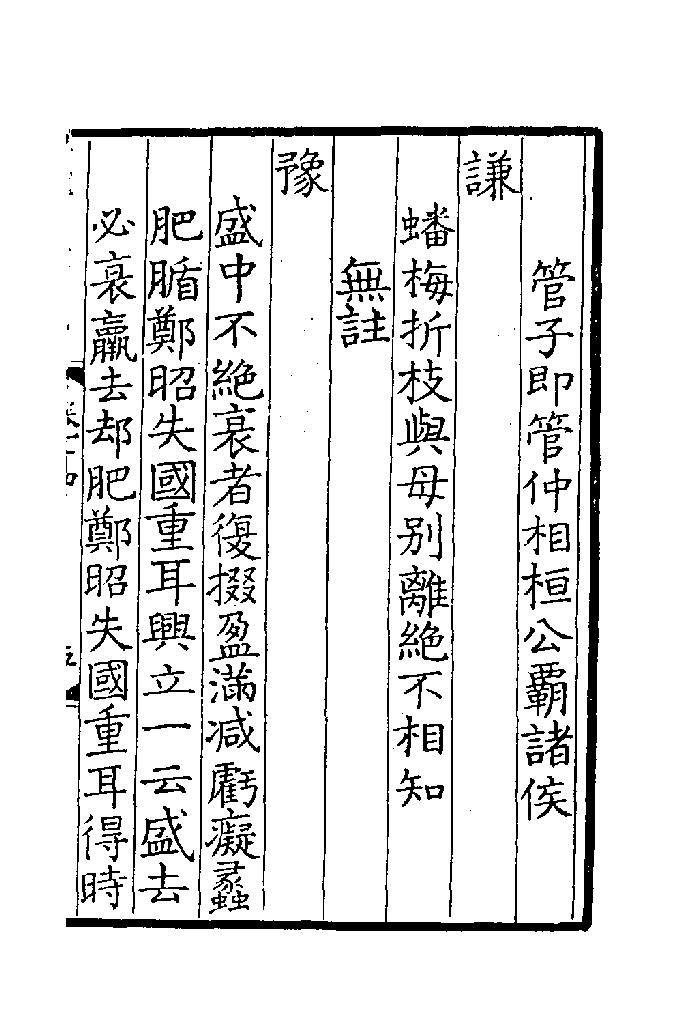 管子即管仲相桓公覇諸侯
謙
蟠梅折枝與母别離絶不相知
無註
豫
盛中不絶衰者復掇盈滿减虧癡蠡
肥腯鄭昭失國重耳興立一云盛去
必衰羸去却肥鄭昭失國重耳得時